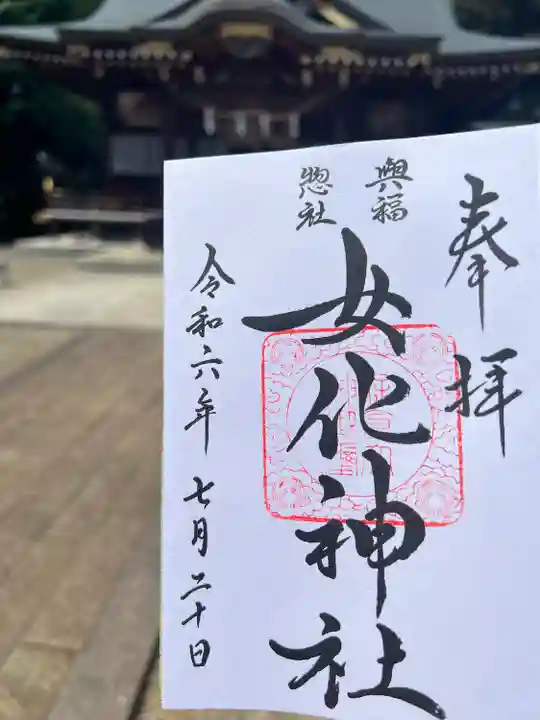 奉拝
興福
惣社
女化神社
令和六年 七月二十日